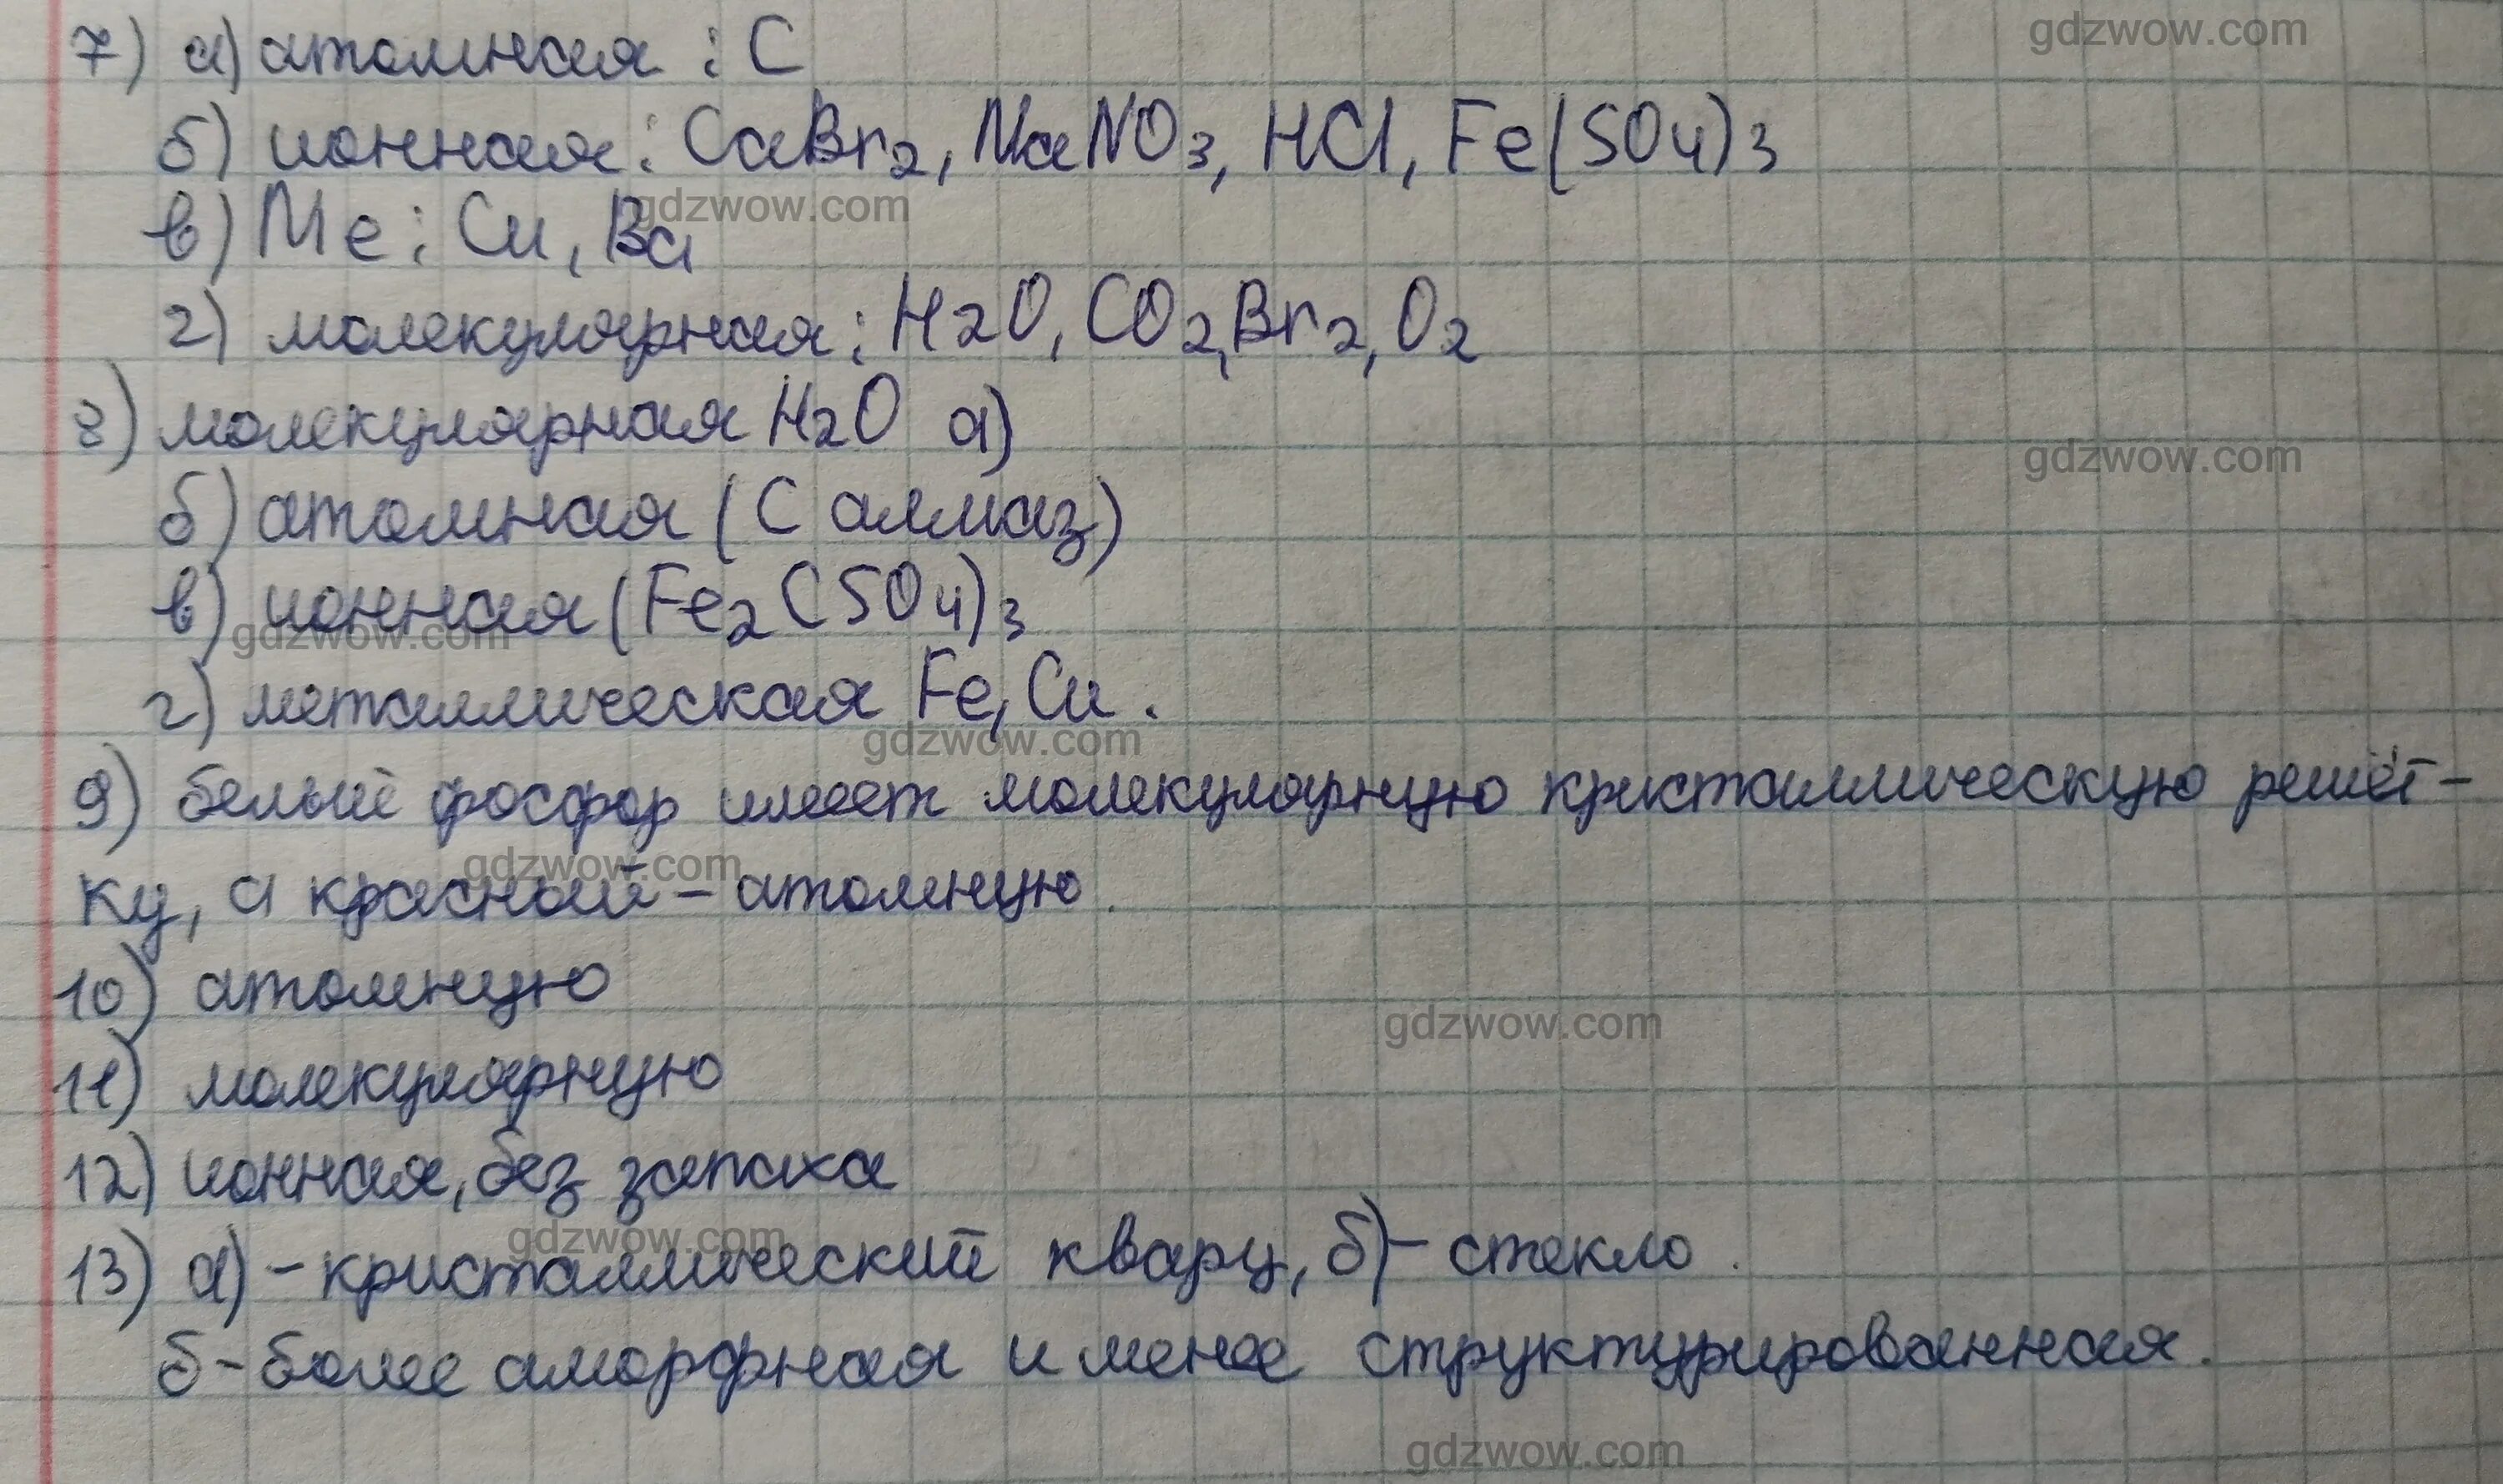 7) а) атомная : C
gdzwow.com
б) ионная: CaBr2, NaNO3, HCl, Fe(SO4)3
gdzwow.com
в) Me: Cu, Ba
г) молекулярная: H2O, CO2, Br2, O2
8) молекулярная H2O а)
gdzwow.com
б) атомная (C алмаз)
в) ионная (Fe2(SO4)3
gdzwow.com
г) металлическая Fe, Cu.
gdzwow.com
9) белый фосфор имеет молекулярную кристаллическую решёт-
gdzwow.com
ку, а красный - атомную.
10) атомную
gdzwow.com
11) молекулярную
12) ионная, без запаха
gdzwow.com
13) а) - кристаллический кварц, б) - стекло.
б - более аморфная и менее структурированная.
gdzwow.com